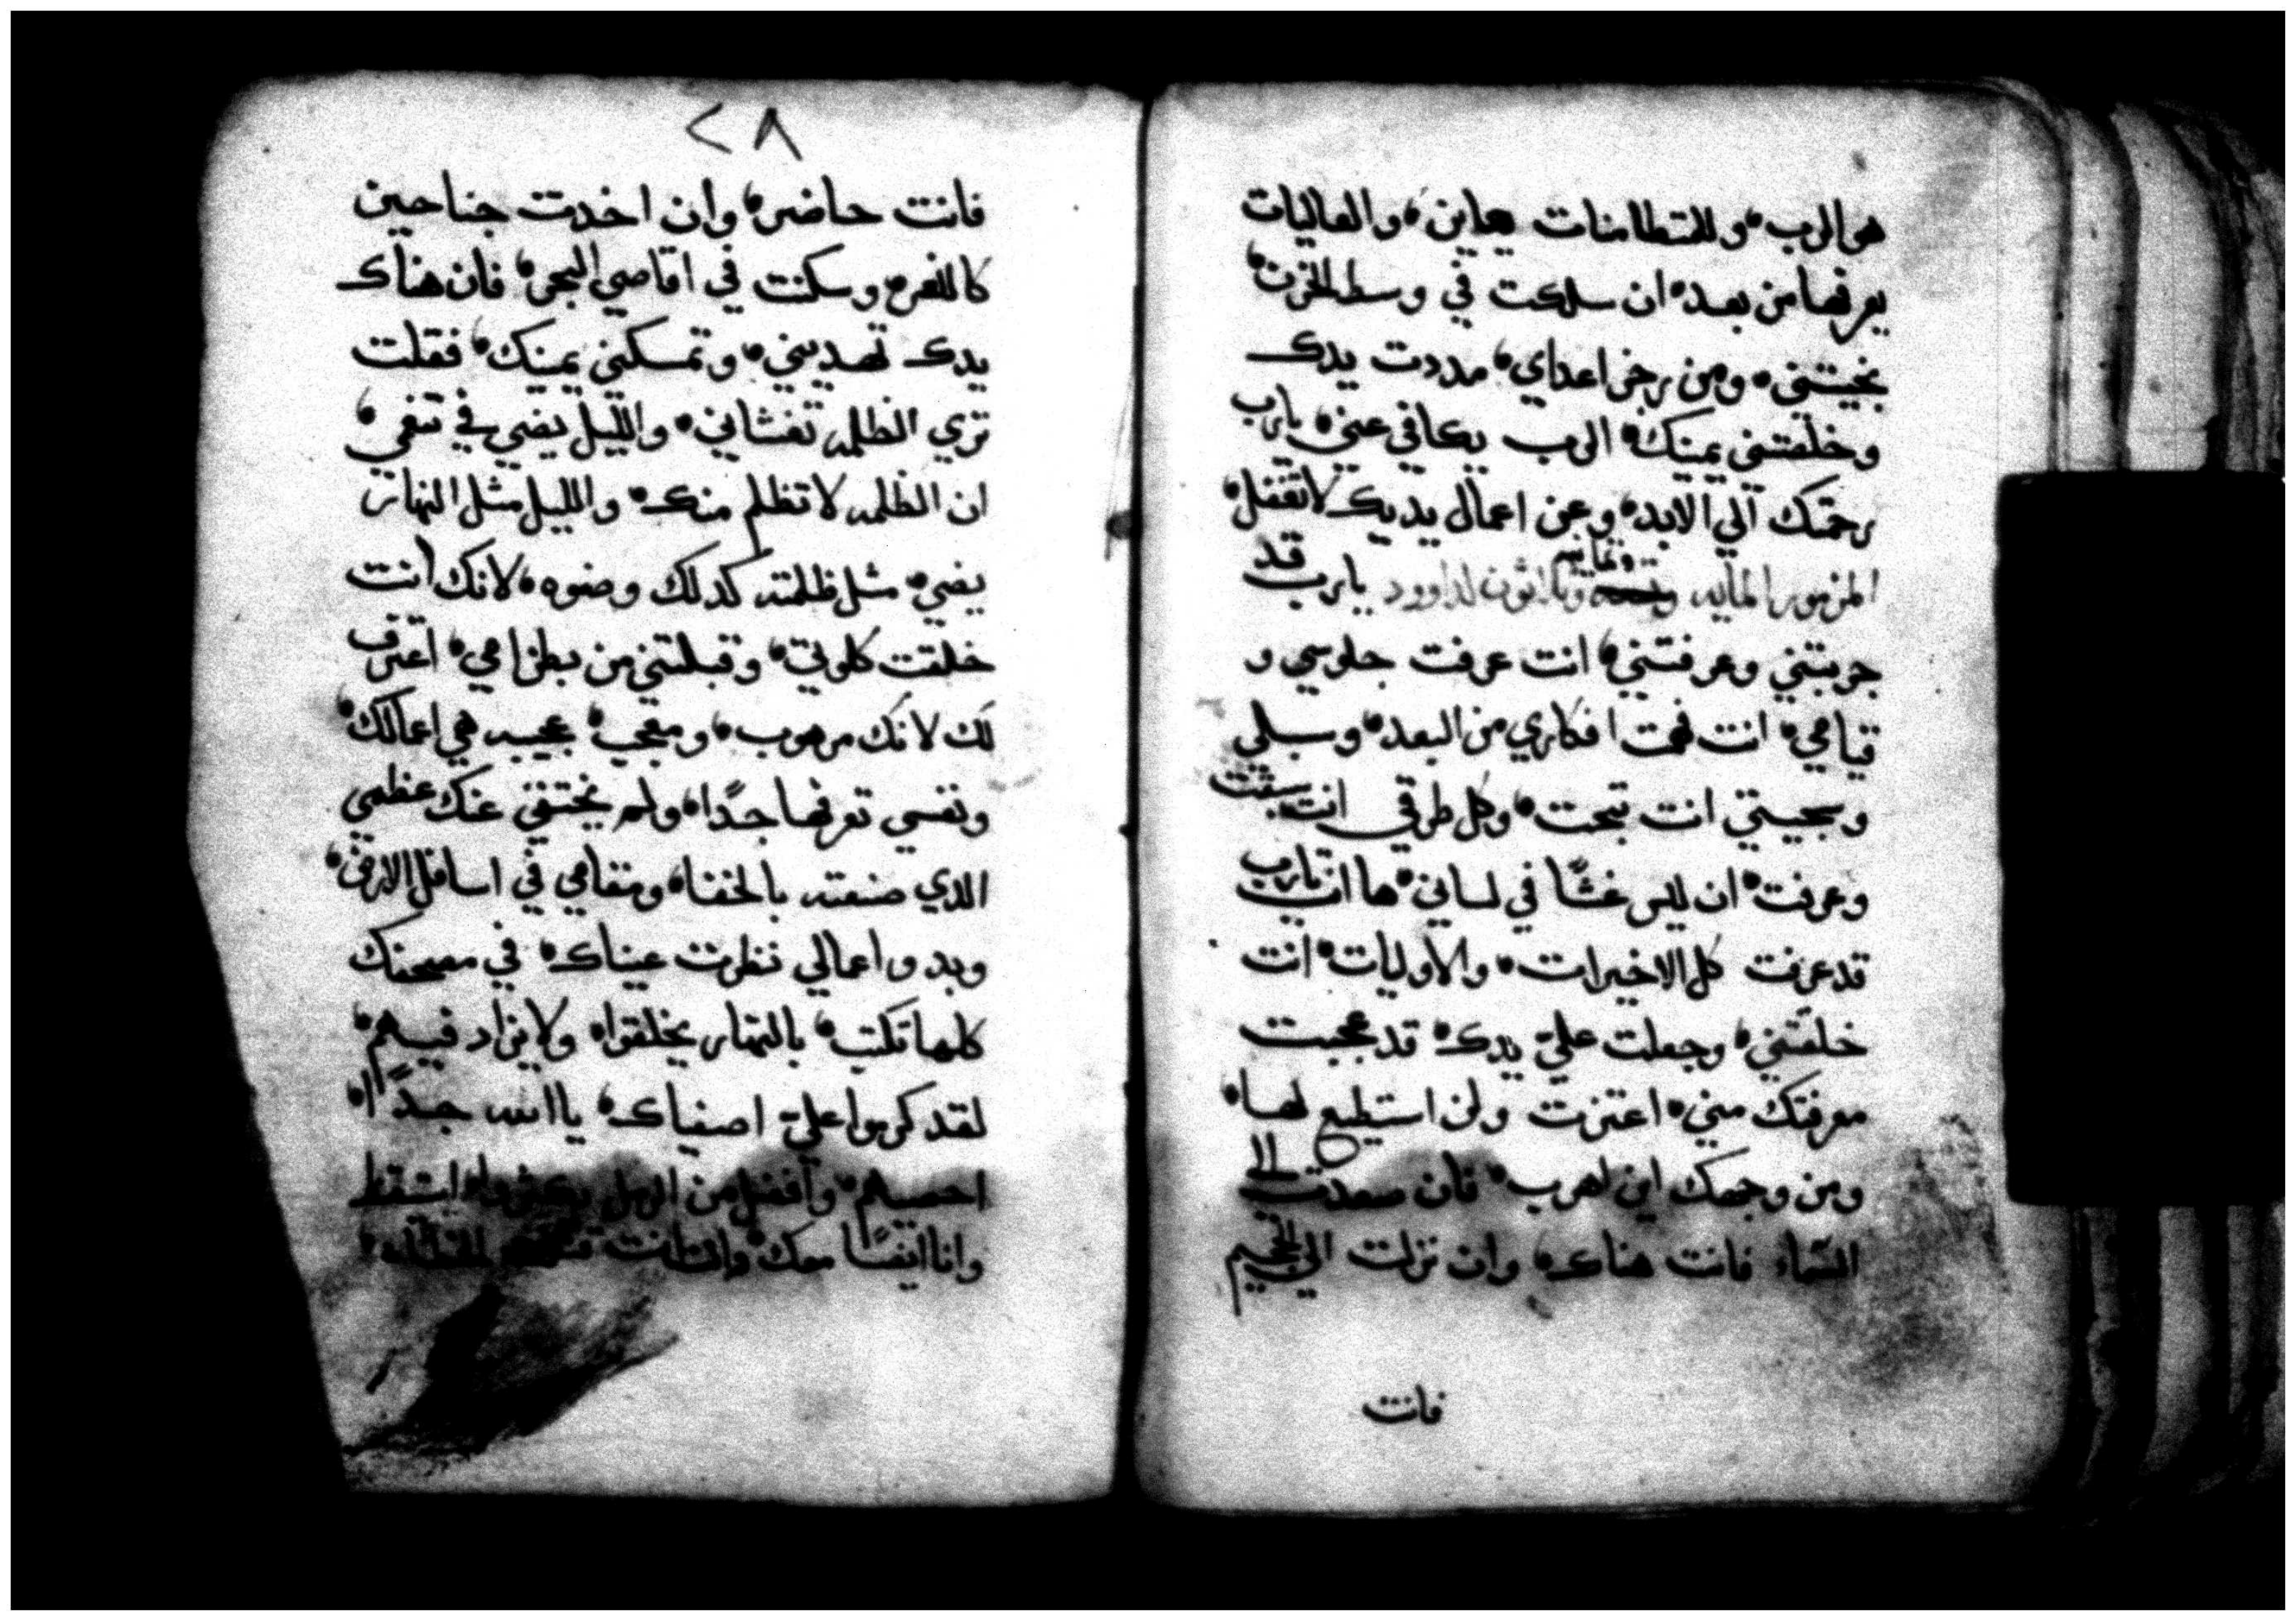 هو الرب، وللمتطامنات يعاين، والعاليات
يعرفها من بعد، ان سلكت في وسط الحزن،
نجيتني، ومن رجز اعداي، مددت يدك
وخلصتني يمينك، الرب يكافي عني، يارب
رحمتك الي الابد، وعن اعمال يديك لا تغفل،
المزمور المايه وثمانيه وثلاثون لداوود يارب قد
جربتني وعرفتني، انت عرفت جلوسي و
قيامي، انت فهمت افكاري من البعد، وسبلي
وسجيتي انت تبحت، وكل طرقي انت سبقت
وعرفت، ان ليس غشًا في لساني، ها انت يارب
قد عرفت كل الاخيرات، والاوليات، انت
خلقتني، وجعلت عليّ يدك، قد عجبت
معرفتك مني، اعتزت ولن استطيع لها،
ومن وجهك اين اهرب، فان صعدت الي
السماء فانت هناك، وان نزلت الي الجحيم
فانت
٢٨
فانت حاضر، وان اخدت جناحين
كالنسر وسكنت في اقاصي البحر، فان هناك
يدك تهديني، وتمسكني يمينك، فقلت
تري الظلمه تغشاني، والليل يضي في تنعمي،
ان الظلمه لا تظلم منك، والليل مثل النهار
يضي، مثل ظلمته كدلك وضوه، لانك انت
خلقت كلوتي، وقبلتني من بطن امي، اعترف
لك لانك مرهوب، ومعجب، عجيبه هي اعمالك،
ونفسي تعرفها جدًا، ولم يختفي عنك عظمي
الدي صنعته بالخفا، ومقامي في اسافل الارض،
وبدو اعمالي نظرت عيناك، في مصحفك
كلها تكتب، بالنهار يخلقوا، ولا يزاد فيهم،
لقد كرموا عليّ اصفياك، يا الله جدًا،
احصيهم، وافضل من الرمل يكثروا، استيقظ
وانا ايضًا معك، وان انت قتلت الخطاه،